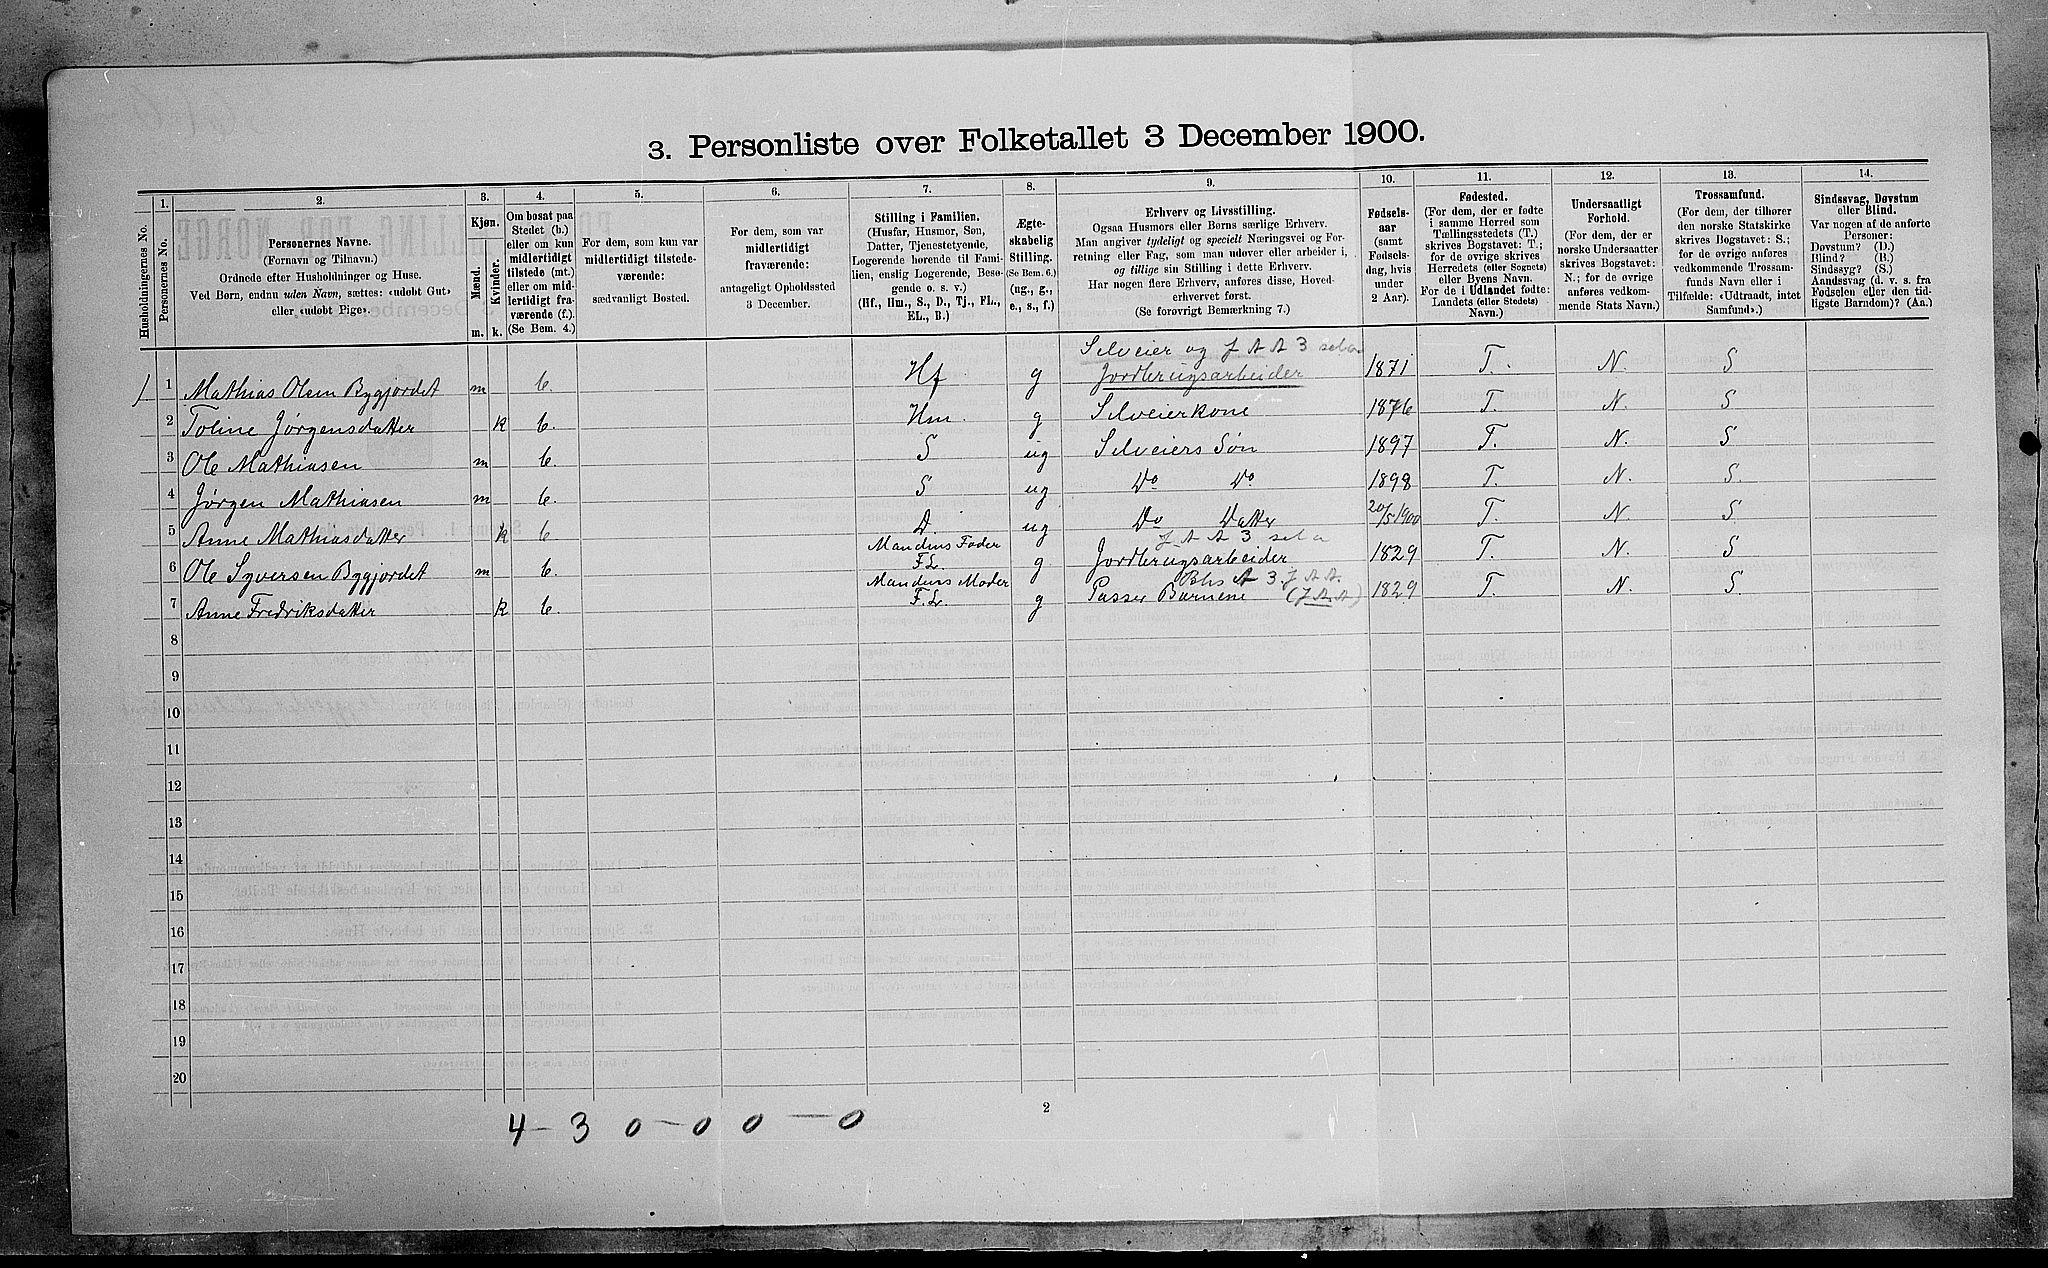 3. Personliste over Folketallet 3 December 1900.
Husholdningernes No.
1.
Personernes No.
2.
Personernes Navne.
(Fornavn og Tilnavn.)
Ordnede efter Husholdninger og Huse.
Ved Børn, endnu uden Navn, sættes: «udøbt Gut»
eller «udøbt Pige».
3.
Kjøn.
Mænd.
Kvinder.
m.
k.
4.
Om bosat paa
Stedet (b.)
eller om kun
midlertidigt
tilstede (mt.)
eller om mid-
lertidigt fra-
værende (f.).
(Se Bem. 4.)
5.
For dem, som kun var
midlertidigt tilstede-
værende:
sædvanligt Bosted.
6.
For dem, som var
midlertidigt
fraværende:
antageligt Opholdssted
3 December.
7.
Stilling i Familien.
(Husfar, Husmor, Søn,
Datter, Tjenestetyende,
Logerende hørende til Fami-
lien, enslig Logerende, Besø-
gende o. s. v.)
(Hf., Hm., S., D., Tj., FL.,
EL., B.)
8.
Ægte-
skabelig
Stilling.
(Se Bem. 6.)
(ug., g.,
e., s., f.)
9.
Erhverv og Livsstilling.
Ogsaa Husmors eller Børns særlige Erhverv.
Man angiver tydeligt og specielt Næringsvei og For-
retning eller Fag, som man udøver eller arbeider i,
og tillige sin Stilling i dette Erhverv.
Har nogen flere Erhverv, anføres disse, Hoved-
erhvervet først.
(Se forøvrigt Bemærkning 7.)
10.
Fødsels-
aar
(samt
Fødsels-
dag, hvis
under
2 Aar).
11.
Fødested.
(For dem, der er fødte
i samme Herred som
Tællingsstedets (T.)
skrives Bogstavet: T.;
for de øvrige skrives
Herredets (eller Sognets)
eller Byens Navn.
For de i Udlandet fødte:
Landets (eller Stedets)
Navn.)
12.
Undersaatligt
Forhold.
(For dem, der er
norske Undersaatter
skrives Bogstavet:
N.; for de øvrige
anføres vedkom-
mende Stats Navn.)
13.
Trossamfund.
(For dem, der tilhører
den norske Statskirke
skrives Bogstavet: S.;
for de øvrige anføres
vedkommende Trossam-
funds Navn eller i
Tilfælde: «Udtraadt, intet
Samfund».)
14.
Sindssvag, Døvstum
eller Blind.
Var nogen af de anførte
Personer:
Døvstum? (D.)
Blind? (B.)
Sindssyg? (S.)
Aandssvag (d. v. s. fra
Fødselen eller den tid-
ligste Barndom)? (Aa.)
Selveier og J A A 3
1 Mathias Olsen Bygjordet m b. Hf g Jordbrugsarbeider 1871 T. N. S
2 Toline Jørgensdatter k b. Hm. g Selveierkone 1876 T. N. S
3 Ole Mathiasen m b. S ug Selveiers Søn 1897 T. N. S
4 Jørgen Mathiasen m b. S ug Do Do 1898 T. N. S.
5 Anne Mathiasdatter k b D ug Do Datter 20/5 1900 T. N. S
Mandens Fader J A A 3
6 Ole Syversen Bygjordet m b. F.L. g Jordbrugsarbeider 1829 T N. S
Mandens Moder Bhs A 3. J A A.
7 Anne Fredriksdatter k b. F.L. g Passer Barnene (J A A) 1829 T. N. S.
8
9
10
11
12
13
14
15
16
17
18
19
20
2
4 - 3 0 - 0 0 - 0